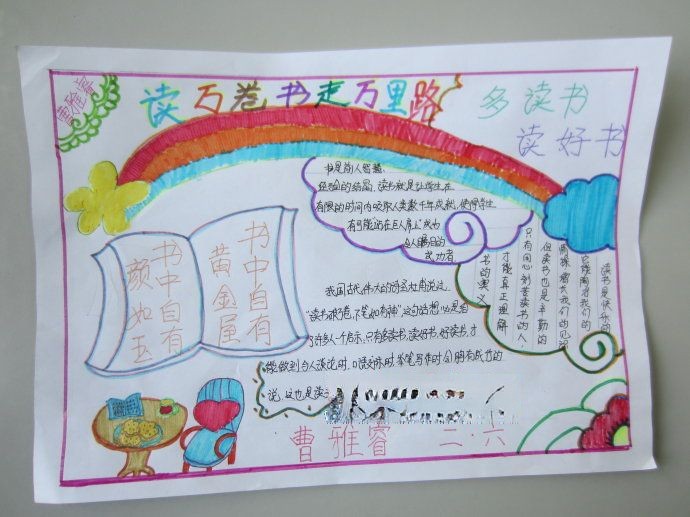 曹雅睿
读万卷书走万里路
多读书
读好书
书是前人智慧、
经验的结晶，读书就是让学生在
有限的时间内吸取人类数千年成就，使得学生
有可能站在巨人肩上成为
令人瞩目的
成功者
书中自有
黄金屋
书中自有
颜如玉
读书是快乐的
它能陶冶我们的
情操 增长我们的见识
但读书也是辛勤的
只有用心刻苦读书的人，
才能真正理解
书的奥义
我国古代伟大的诗圣杜甫说过，
"读书破万卷，下笔如有神"这句话想必是给
了许多人一个启示，只有多读书，读好书，好读书，才
能做到与人谈论时，口语交际时 举笔写作时会胸有成竹的
说，这也是读
曹雅睿 二·六